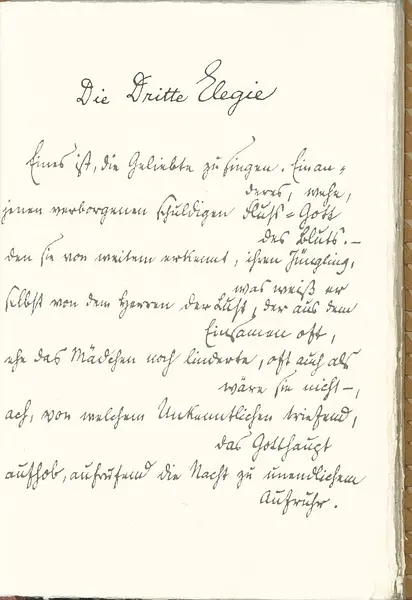 Die Dritte Elegie
Eines ist, die Geliebte zu singen. Ein an-
deres, wehe,
jenen verborgenen schuldigen Fluß-Gott
des Bluts.–
Den sie von weitem erkennt, ihren Jüngling,
was weiß er
selbst von dem Herren der Lust, der aus dem
Einsamen oft,
ehe das Mädchen noch linderte, oft auch als
wäre sie nicht–,
ach, von welchem Unkenntlichen triefend,
das Gotthaupt
aufhob, aufrufend die Nacht zu unendlichem
Aufruhr.